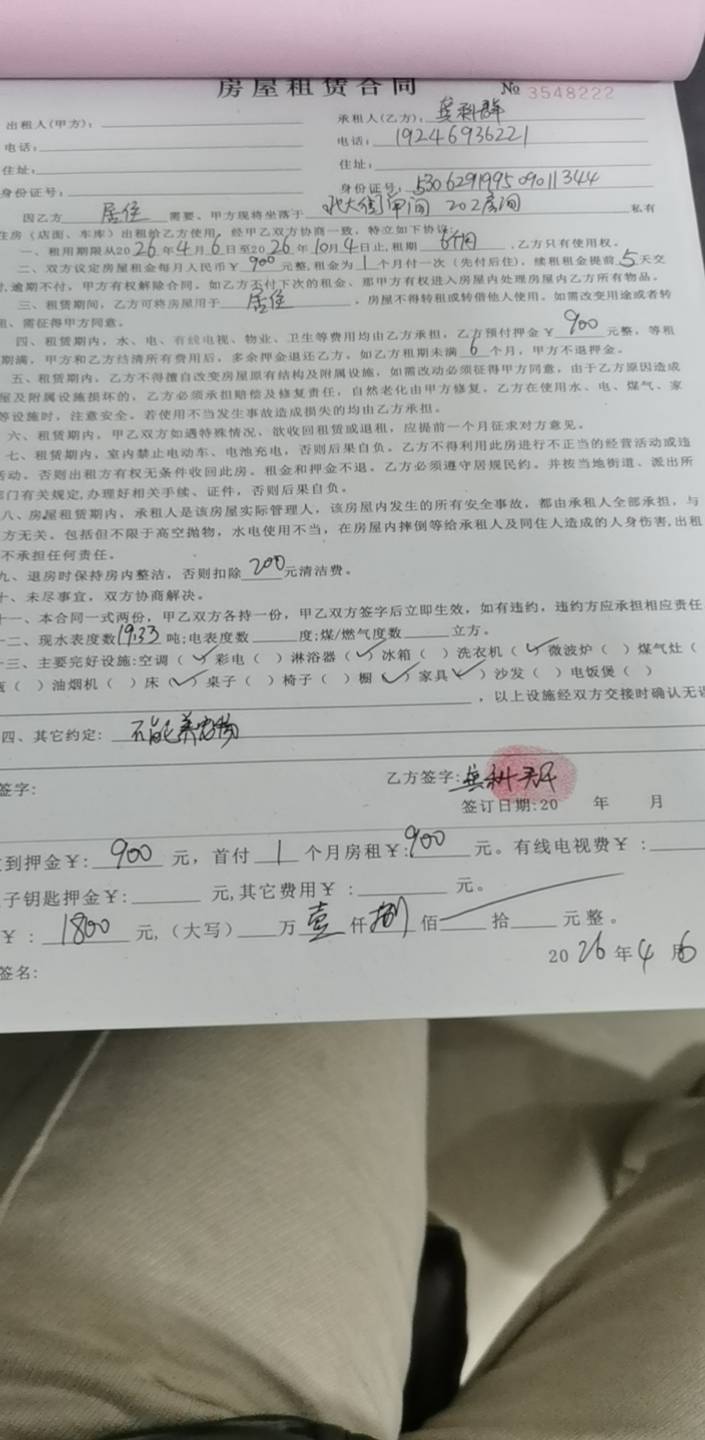 房屋租赁合同 № 3548222
出租人(甲方): 承租人(乙方):
电话: 电话: 19246936221
住址: 住址:
身份证号: 身份证号: 530629199509011344
因乙方 居住 需要、甲方现将坐落于 北大街 甲间 202房间 私有
住房(店面、车库)出租给乙方使用,经甲乙双方协商一致,特立如下协议:
一、租用期限从2026年4月6日至2026年10月4日止,租期 6个月 ,乙方只有使用权。
二、双方议定房屋租金每月人民币¥ 900 元整,租金为 1 个月付一次(先付后住),续租租金提前 5 天交
,逾期不付,甲方有权解除合同。如乙方不付下次的租金、那甲方有权进入房屋内处理房屋内乙方所有物品。
三、租赁期间,乙方可将房屋用于 居住 。房屋不得转租或转借他人使用。如需改变用途或者转
租、需征得甲方同意。
四、租赁期内,水、电、有线电视、物业、卫生等费用均由乙方承担,乙方预付押金¥ 900 元整,等租
期满,甲方和乙方结清所有费用后,多余押金退还乙方。如乙方租期未满 6 个月,甲方不退押金。
五、租赁期内,乙方不得擅自改变房屋原有结构及附属设施,如需改动必须征得甲方同意,由于乙方原因造成
屋及附属设施损坏的,乙方必须承担赔偿及修复责任,自然老化由甲方修复。乙方在使用水、电、煤气、家
等设施时,注意安全。若使用不当发生事故造成损失的均由乙方承担。
六、租赁期内,甲乙双方如遇特殊情况,欲收回租赁或退租,应提前一个月征求对方意见。
七、租赁期内,室内禁止电动车、电池充电,否则后果自负。乙方不得利用此房进行不正当的经营活动或违
活动。否则出租方有权无条件收回此房。租金和押金不退。乙方必须遵守居规民约。并按当地街道、派出所
部门有关规定,办理好相关手续、证件,否则后果自负。
八、房屋租赁期内,承租人是该房屋实际管理人,该房屋内发生的所有安全事故,都由承租人全部承担,与
方无关。包括但不限于高空抛物,水电使用不当,在房屋内摔倒等给承租人及同住人造成的人身伤害,出租
不承担任何责任。
九、退房时保持房内整洁,否则扣除 200 元清洁费。
十、未尽事宜,双方协商解决。
十一、本合同一式两份,甲乙双方各持一份,甲乙双方签字后立即生效,如有违约,违约方应承担相应责任
十二、现水表度数 1933 吨;电表度数 度;煤/燃气度数 立方。
十三、主要完好设施:空调(✓)彩电( )淋浴器(✓)冰箱( )洗衣机(✓)微波炉( )煤气灶(
( )油烟机( )床(✓)桌子( )椅子( )橱(✓)家具(✓)沙发( )电饭煲( )
,以上设施经双方交接时确认无误
四、其它约定: 不能养宠物
签字: 乙方签字:
签订日期:20 年 月
到押金¥: 900 元,首付 1 个月房租¥: 900 元。有线电视费¥:
子钥匙押金¥: 元,其它费用¥: 元。
¥: 1800 元,(大写) 万 壹 仟 捌 佰 拾 元整。
签名: 2026年4月6